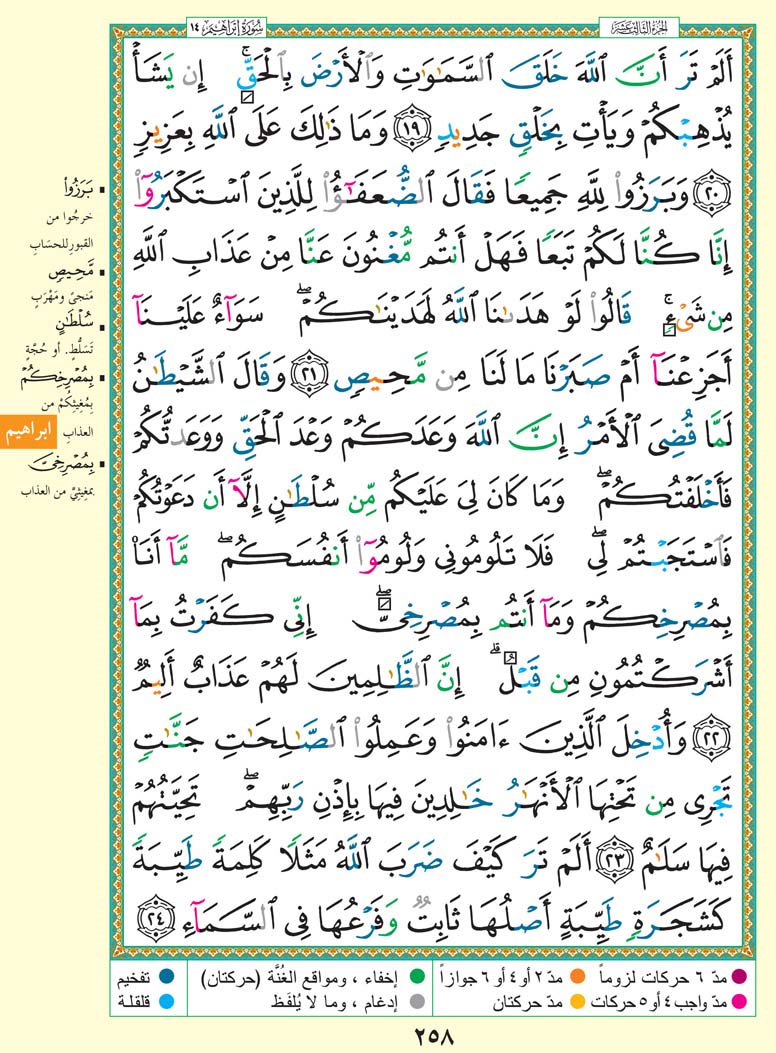 سُورَةُ إبراهيم ١٤
الجزء الثالث عشر
أَلَمۡ تَرَ أَنَّ ٱللَّهَ خَلَقَ ٱلسَّمَٰوَٰتِ وَٱلۡأَرۡضَ بِٱلۡحَقِّۚ إِن يَشَأۡ
يُذۡهِبۡكُمۡ وَيَأۡتِ بِخَلۡقٖ جَدِيدٖ ١٩ وَمَا ذَٰلِكَ عَلَى ٱللَّهِ بِعَزِيزٖ
٢٠ وَبَرَزُواْ لِلَّهِ جَمِيعٗا فَقَالَ ٱلضُّعَفَٰٓؤُاْ لِلَّذِينَ ٱسۡتَكۡبَرُوٓاْ
إِنَّا كُنَّا لَكُمۡ تَبَعٗا فَهَلۡ أَنتُم مُّغۡنُونَ عَنَّا مِنۡ عَذَابِ ٱللَّهِ
مِن شَيۡءٖۚ قَالُواْ لَوۡ هَدَىٰنَا ٱللَّهُ لَهَدَيۡنَٰكُمۡۖ سَوَآءٌ عَلَيۡنَآ
أَجَزِعۡنَآ أَمۡ صَبَرۡنَا مَا لَنَا مِن مَّحِيصٖ ٢١ وَقَالَ ٱلشَّيۡطَٰنُ
لَمَّا قُضِيَ ٱلۡأَمۡرُ إِنَّ ٱللَّهَ وَعَدَكُمۡ وَعۡدَ ٱلۡحَقِّ وَوَعَدتُّكُمۡ
فَأَخۡلَفۡتُكُمۡۖ وَمَا كَانَ لِيَ عَلَيۡكُم مِّن سُلۡطَٰنٍ إِلَّآ أَن دَعَوۡتُكُمۡ
فَٱسۡتَجَبۡتُمۡ لِيۖ فَلَا تَلُومُونِي وَلُومُوٓاْ أَنفُسَكُمۖ مَّآ أَنَا۠
بِمُصۡرِخِكُمۡ وَمَآ أَنتُم بِمُصۡرِخِيَّۖ إِنِّي كَفَرۡتُ بِمَآ
أَشۡرَكۡتُمُونِ مِن قَبۡلُۗ إِنَّ ٱلظَّٰلِمِينَ لَهُمۡ عَذَابٌ أَلِيمٞ
٢٢ وَأُدۡخِلَ ٱلَّذِينَ ءَامَنُواْ وَعَمِلُواْ ٱلصَّٰلِحَٰتِ جَنَّٰتٖ
تَجۡرِي مِن تَحۡتِهَا ٱلۡأَنۡهَٰرُ خَٰلِدِينَ فِيهَا بِإِذۡنِ رَبِّهِمۡۖ تَحِيَّتُهُمۡ
فِيهَا سَلَٰمٌ ٢٣ أَلَمۡ تَرَ كَيۡفَ ضَرَبَ ٱللَّهُ مَثَلٗا كَلِمَةٗ طَيِّبَةٗ
كَشَجَرَةٖ طَيِّبَةٍ أَصۡلُهَا ثَابِتٞ وَفَرۡعُهَا فِي ٱلسَّمَآءِ ٢٤
بَرَزُواْ
خرجُوا من
القبورِ للحسَابِ
مَّحِيصٖ
مَنجىً ومَهْرَبٍ
سُلۡطَٰنٍ
تَسَلُّطٍ. أو حُجَّةٍ
بِمُصۡرِخِكُمۡ
بِمُغيثِكُمْ من
العذابِ
ابراهيم
بِمُصۡرِخِيَّ
بمغيثِيَّ من العذاب
مدّ ٦ حركات لزوماً
مدّ ٢ أو ٤ أو ٦ جوازاً
إخفاء ، ومواقع الغُنَّة (حركتان)
تفخيم
مدّ واجب ٤ أو ٥ حركات
مدّ حركتان
إدغام ، وما لا يُلفَظ
قلقلة
٢٥٨